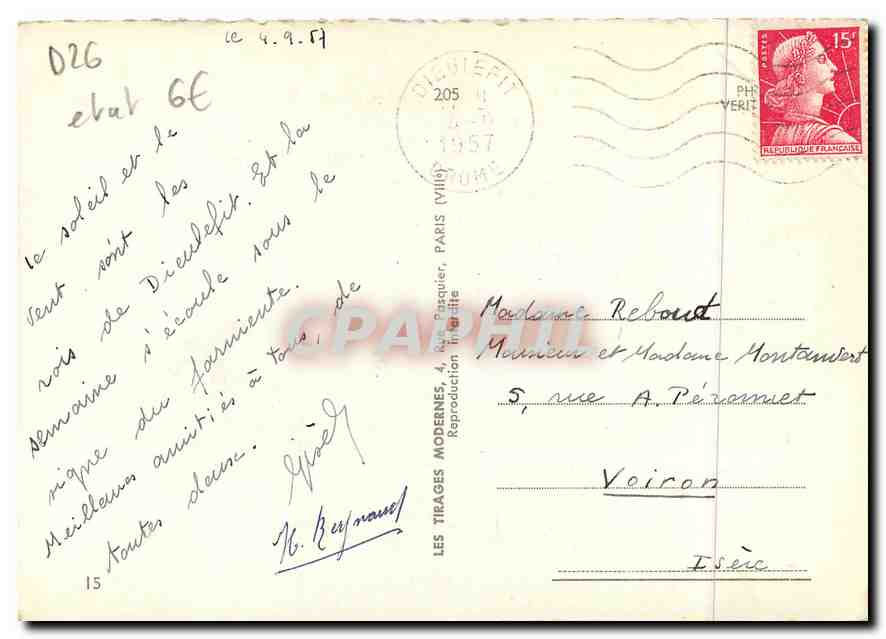 le 4.9.57
D26
etat 6€
le soleil et le
vent sont les
rois de Dieulefit. Et la
semaine s'écoule sous le
signe du farniente.
Meilleures amitiés à tous, de
toutes deux.
Gisèle
H. Reynaud
15
205
DIEULEFIT
4-9
1957
DROME
PH
VERIT
POSTES
15F
REPUBLIQUE FRANÇAISE
LES TIRAGES MODERNES, 4, Rue Pasquier, PARIS (VIIIe)
Reproduction interdite
CPAPHIL
Madame Rebout
Monsieur et Madame Montanvert
5, rue A. Péronnet
Voiron
Isère